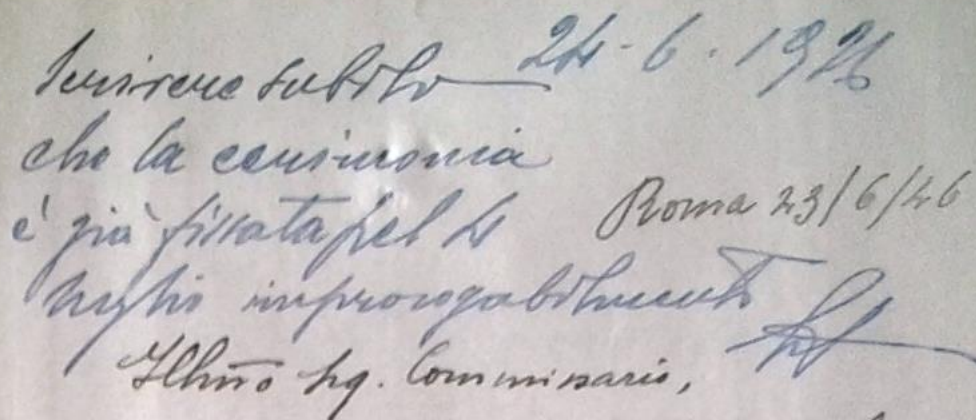 Scrivere subito 24-6-1926
che la cerimonia
è già fissata pel 4
Roma 23/6/26
luglio improrogabilmente
Illmo Sig. Commissario,